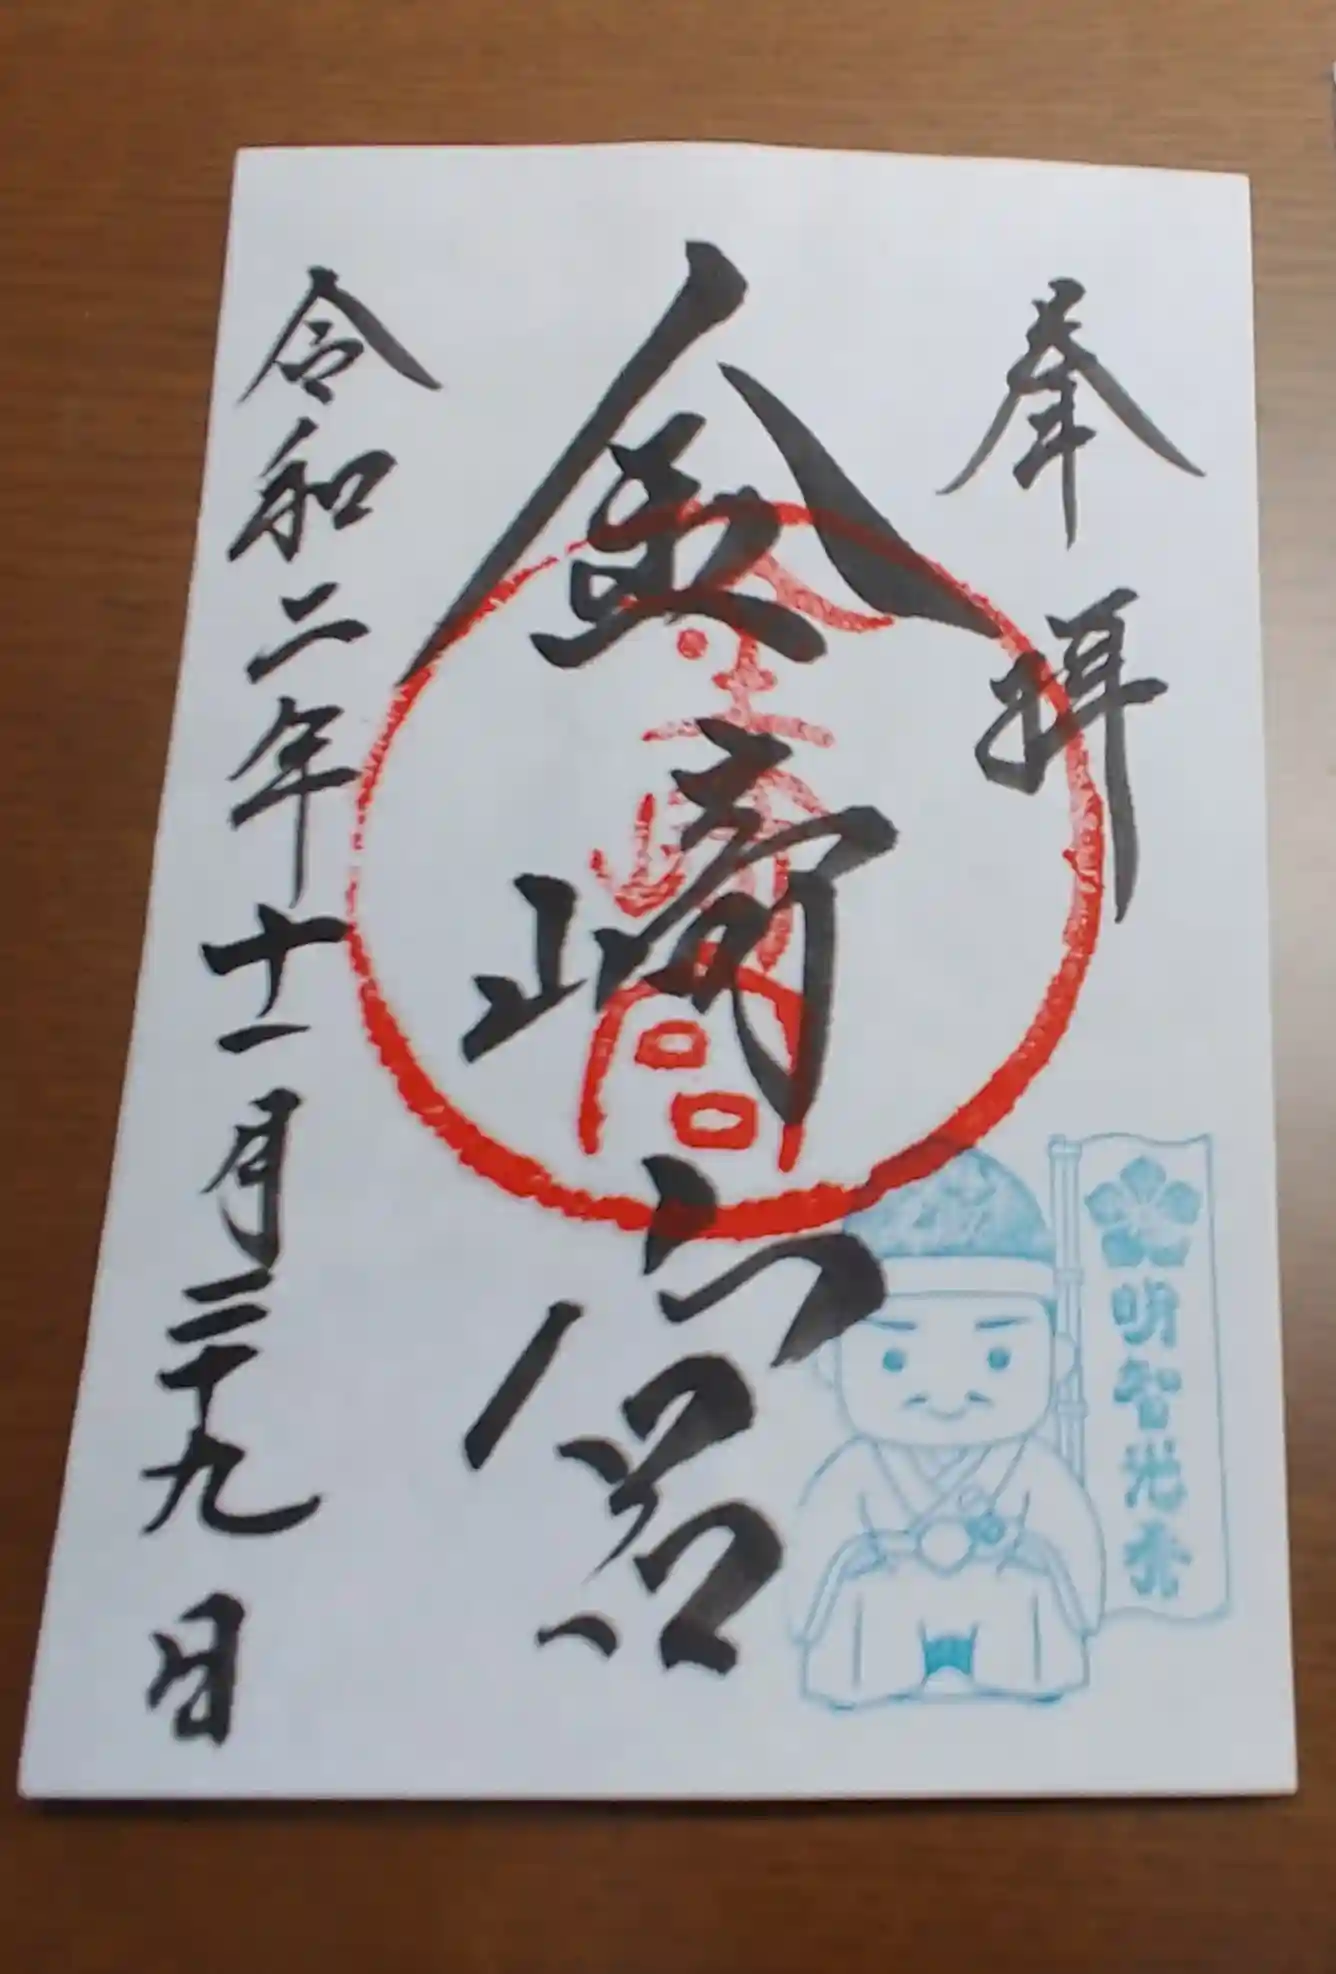 奉拝
金崎宮
令和二年十一月二十九日
金崎宮
明智光秀